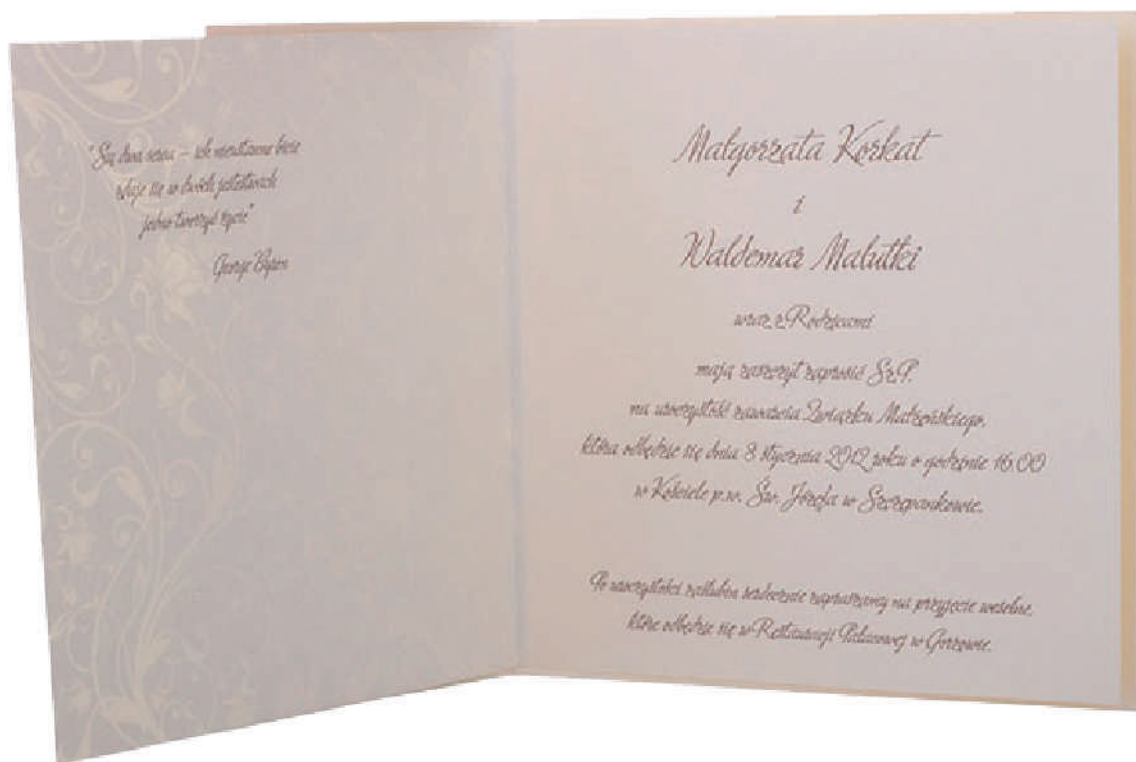 "Są dwa serca – ich nieustanne bicie
zdaje się w dwóch jestestwach
jedno tworzyć życie"
George Byron
Małgorzata Korkat
i
Waldemar Malutki
wraz z Rodzicami
mają zaszczyt zaprosić Sz.P.
na uroczystość zawarcia Związku Małżeńskiego,
która odbędzie się dnia 8 stycznia 2012 roku o godzinie 16.00
w Kościele p.w. Św. Józefa w Szczepankowie.
Po uroczystości zaślubin serdecznie zapraszamy na przyjęcie weselne,
które odbędzie się w Restauracji Pałacowej w Gorzowie.